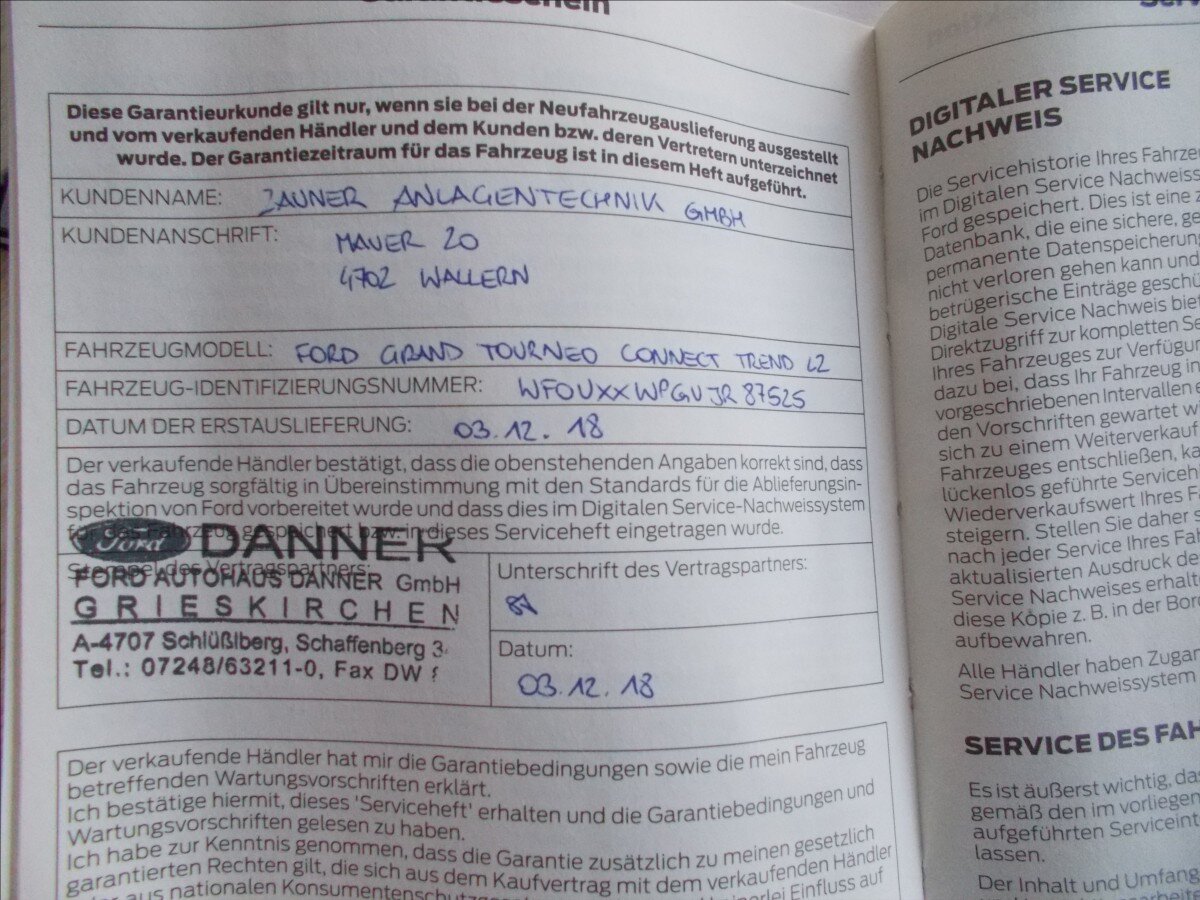 Garantieschein
Diese Garantieurkunde gilt nur, wenn sie bei der Neufahrzeugauslieferung ausgestellt
und vom verkaufenden Händler und dem Kunden bzw. deren Vertretern unterzeichnet
wurde. Der Garantiezeitraum für das Fahrzeug ist in diesem Heft aufgeführt.
KUNDENNAME: ZAUNER ANLAGENTECHNIK GMBH
KUNDENANSCHRIFT: MAUER 20
4702 WALLERN
FAHRZEUGMODELL: FORD GRAND TOURNEO CONNECT TREND L2
FAHRZEUG-IDENTIFIZIERUNGSNUMMER: WFOUXXWPGUJR87525
DATUM DER ERSTAUSLIEFERUNG: 03.12.18
Der verkaufende Händler bestätigt, dass die obenstehenden Angaben korrekt sind, dass
das Fahrzeug sorgfältig in Übereinstimmung mit den Standards für die Ablieferungsin-
spektion von Ford vorbereitet wurde und dass dies im Digitalen Service-Nachweissystem
für das Fahrzeug gespeichert bzw. in dieses Serviceheft eingetragen wurde.
Stempel des Vertragspartners:
Ford DANNER
FORD AUTOHAUS DANNER GmbH
GRIESKIRCHEN
A-4707 Schlüßlberg, Schaffenberg 3
Tel.: 07248/63211-0, Fax DW
Unterschrift des Vertragspartners:
Datum:
03.12.18
Der verkaufende Händler hat mir die Garantiebedingungen sowie die mein Fahrzeug
betreffenden Wartungsvorschriften erklärt.
Ich bestätige hiermit, dieses 'Serviceheft' erhalten und die Garantiebedingungen und
Wartungsvorschriften gelesen zu haben.
Ich habe zur Kenntnis genommen, dass die Garantie zusätzlich zu meinen gesetzlich
garantierten Rechten gilt, die sich aus dem Kaufvertrag mit dem verkaufenden Händler
aus nationalen Einfluss auf
DIGITALER SERVICE
NACHWEIS
Die Servicehistorie Ihres
im Digitalen Service
Ford gespeichert. Dies ist eine
Datenbank, die eine sichere,
permanente Datenspeicherung
nicht verloren gehen kann und
betrügerische Einträge
Digitale Service Nachweis
Direktzugriff zur kompletten
Ihres Fahrzeuges zur
dazu bei, dass Ihr Fahrzeug in
vorgeschriebenen Intervallen
den Vorschriften gewartet
sich zu einem
Fahrzeuges entschließen,
lückenlos geführte
Wiederverkaufswert Ihres
steigern. Stellen Sie daher
nach jeder Service Ihres
aktualisierten Ausdruck
Service Nachweises
diese Kopie z. B. in der
aufbewahren.
Alle Händler haben
Service Nachweissystem
SERVICE DES
Es ist äußerst wichtig,
gemäß den im
aufgeführten
lassen.
Der Inhalt und